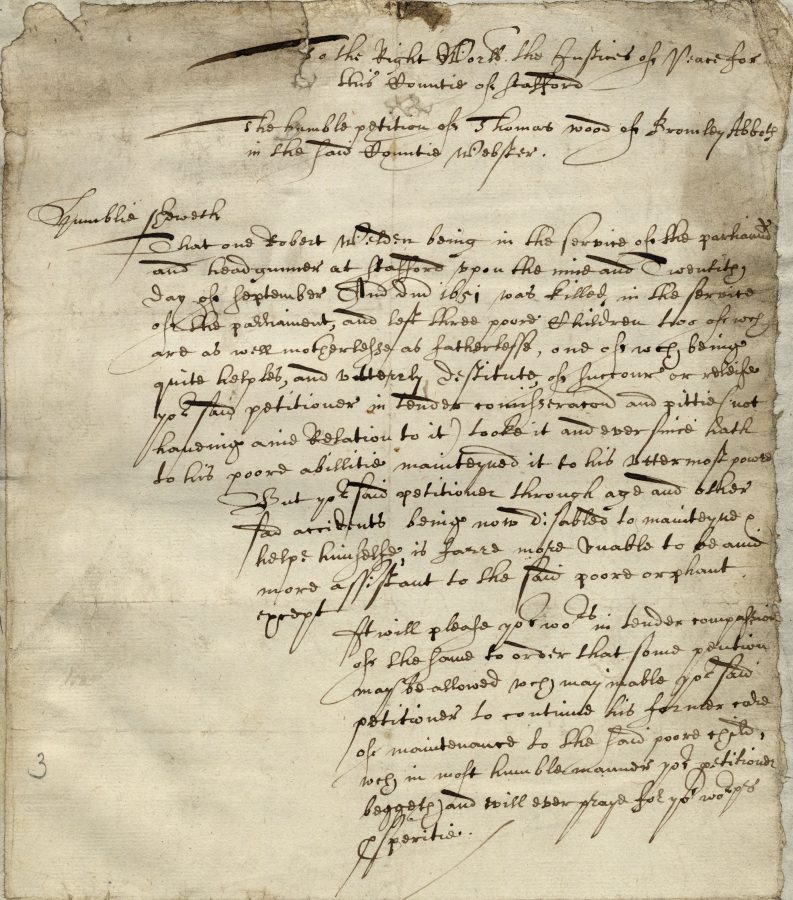 To the Right Wor:ll the Justices of Peace for
this Countie of Stafford
The humble petition of Thomas Wood of Bromley Abbotts
in the said Countie Webster.
Humblie sheweth
That one Robert Welden being in the service of the parliamt
and headgunner at Stafford upon the nine and Twentith
day of September Anno dni 1651 was killed in the service
of the parliament, and left three poore Children two of wch
are as well motherlesse as fatherlesse, one of wch being
quite helples, and utterly destitute of succour or releife
yor said petitioner in tender comisseracon and pittie (not
haveing anie Relation to it) tooke it and ever since hath
to his poore abillitie mainteyned it to his uttermost power
But yor said petitioner through age and other
sad accidents being now disabled to mainteyne &
helpe himselfe, is farre more unable to be anie
more assistant to the said poore orphant
except
It will please yor wops in tender compassion
of the same to order that some pention
may be allowed wch may inable yor said
petitioner to continue his former care
of maintenance to the said poore child,
wch in most humble manner yor petitioner
beggeth, and will ever praye for yor worpps
psperitie.
3